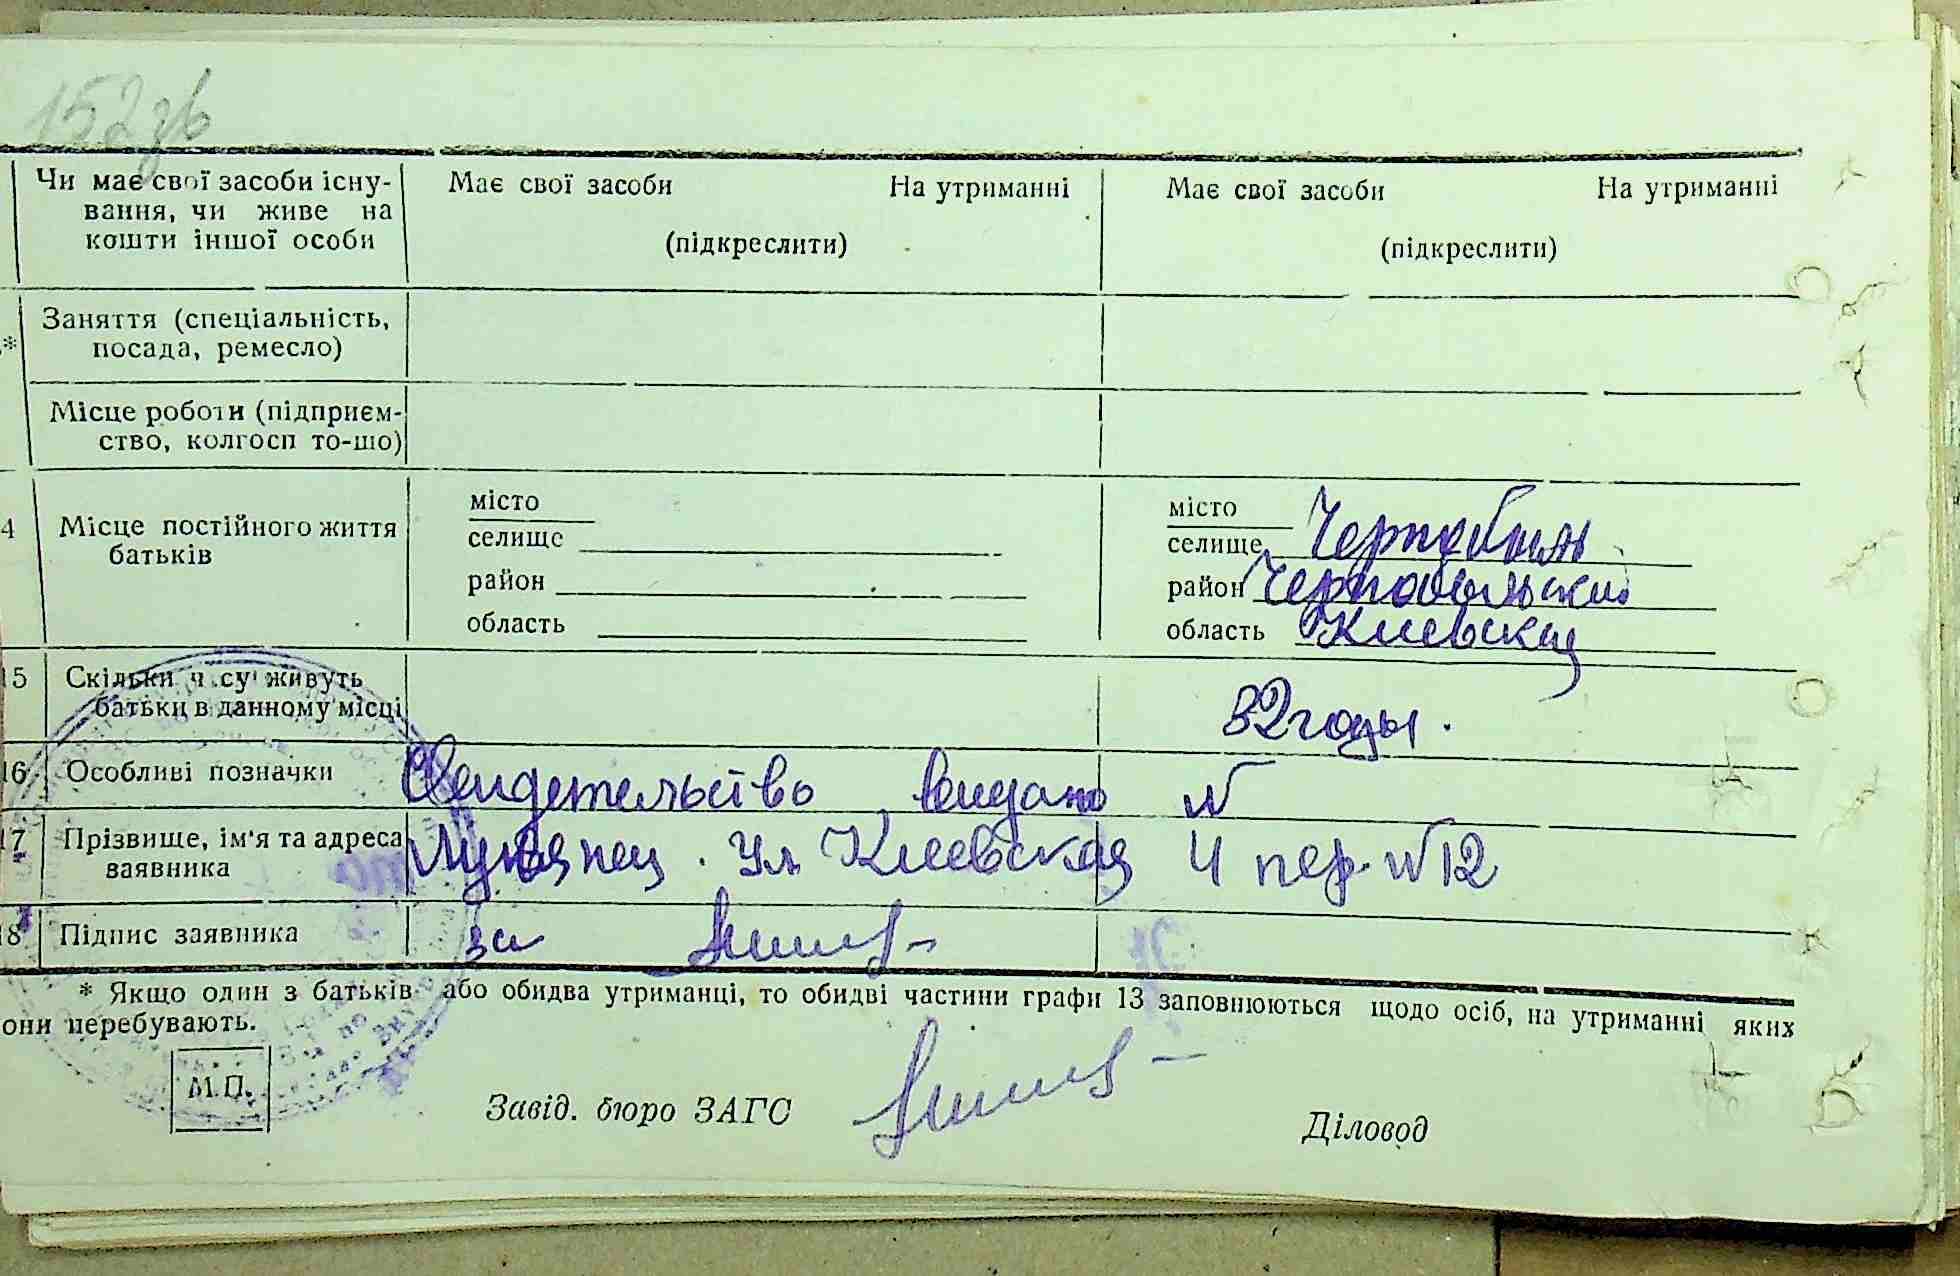 152зв
Чи має свої засоби існу- Має свої засоби На утриманні Має свої засоби На утриманні
вання, чи живе на
кошти іншої особи (підкреслити) (підкреслити)
Заняття (спеціальність,
* посада, ремесло)
Місце роботи (підприєм-
ство, колгосп то-що)
місто місто
4 Місце постійного життя селище селище Чернобыль
батьків район район Чернобыльский
область область Киевская
15 Скільки ч су живуть 32 годы.
батьки в данному місці
16 Особливі позначки Свидетельство выдано №
17 Прізвище, ім'я та адреса Лукьянец. ул Киевская 4 пер. №12
заявника
18 Підпис заявника за
* Якщо один з батьків або обидва утриманці, то обидві частини графи 13 заповнюються щодо осіб, на утриманні яких
они перебувають.
М.П.
Завід. бюро ЗАГС Діловод